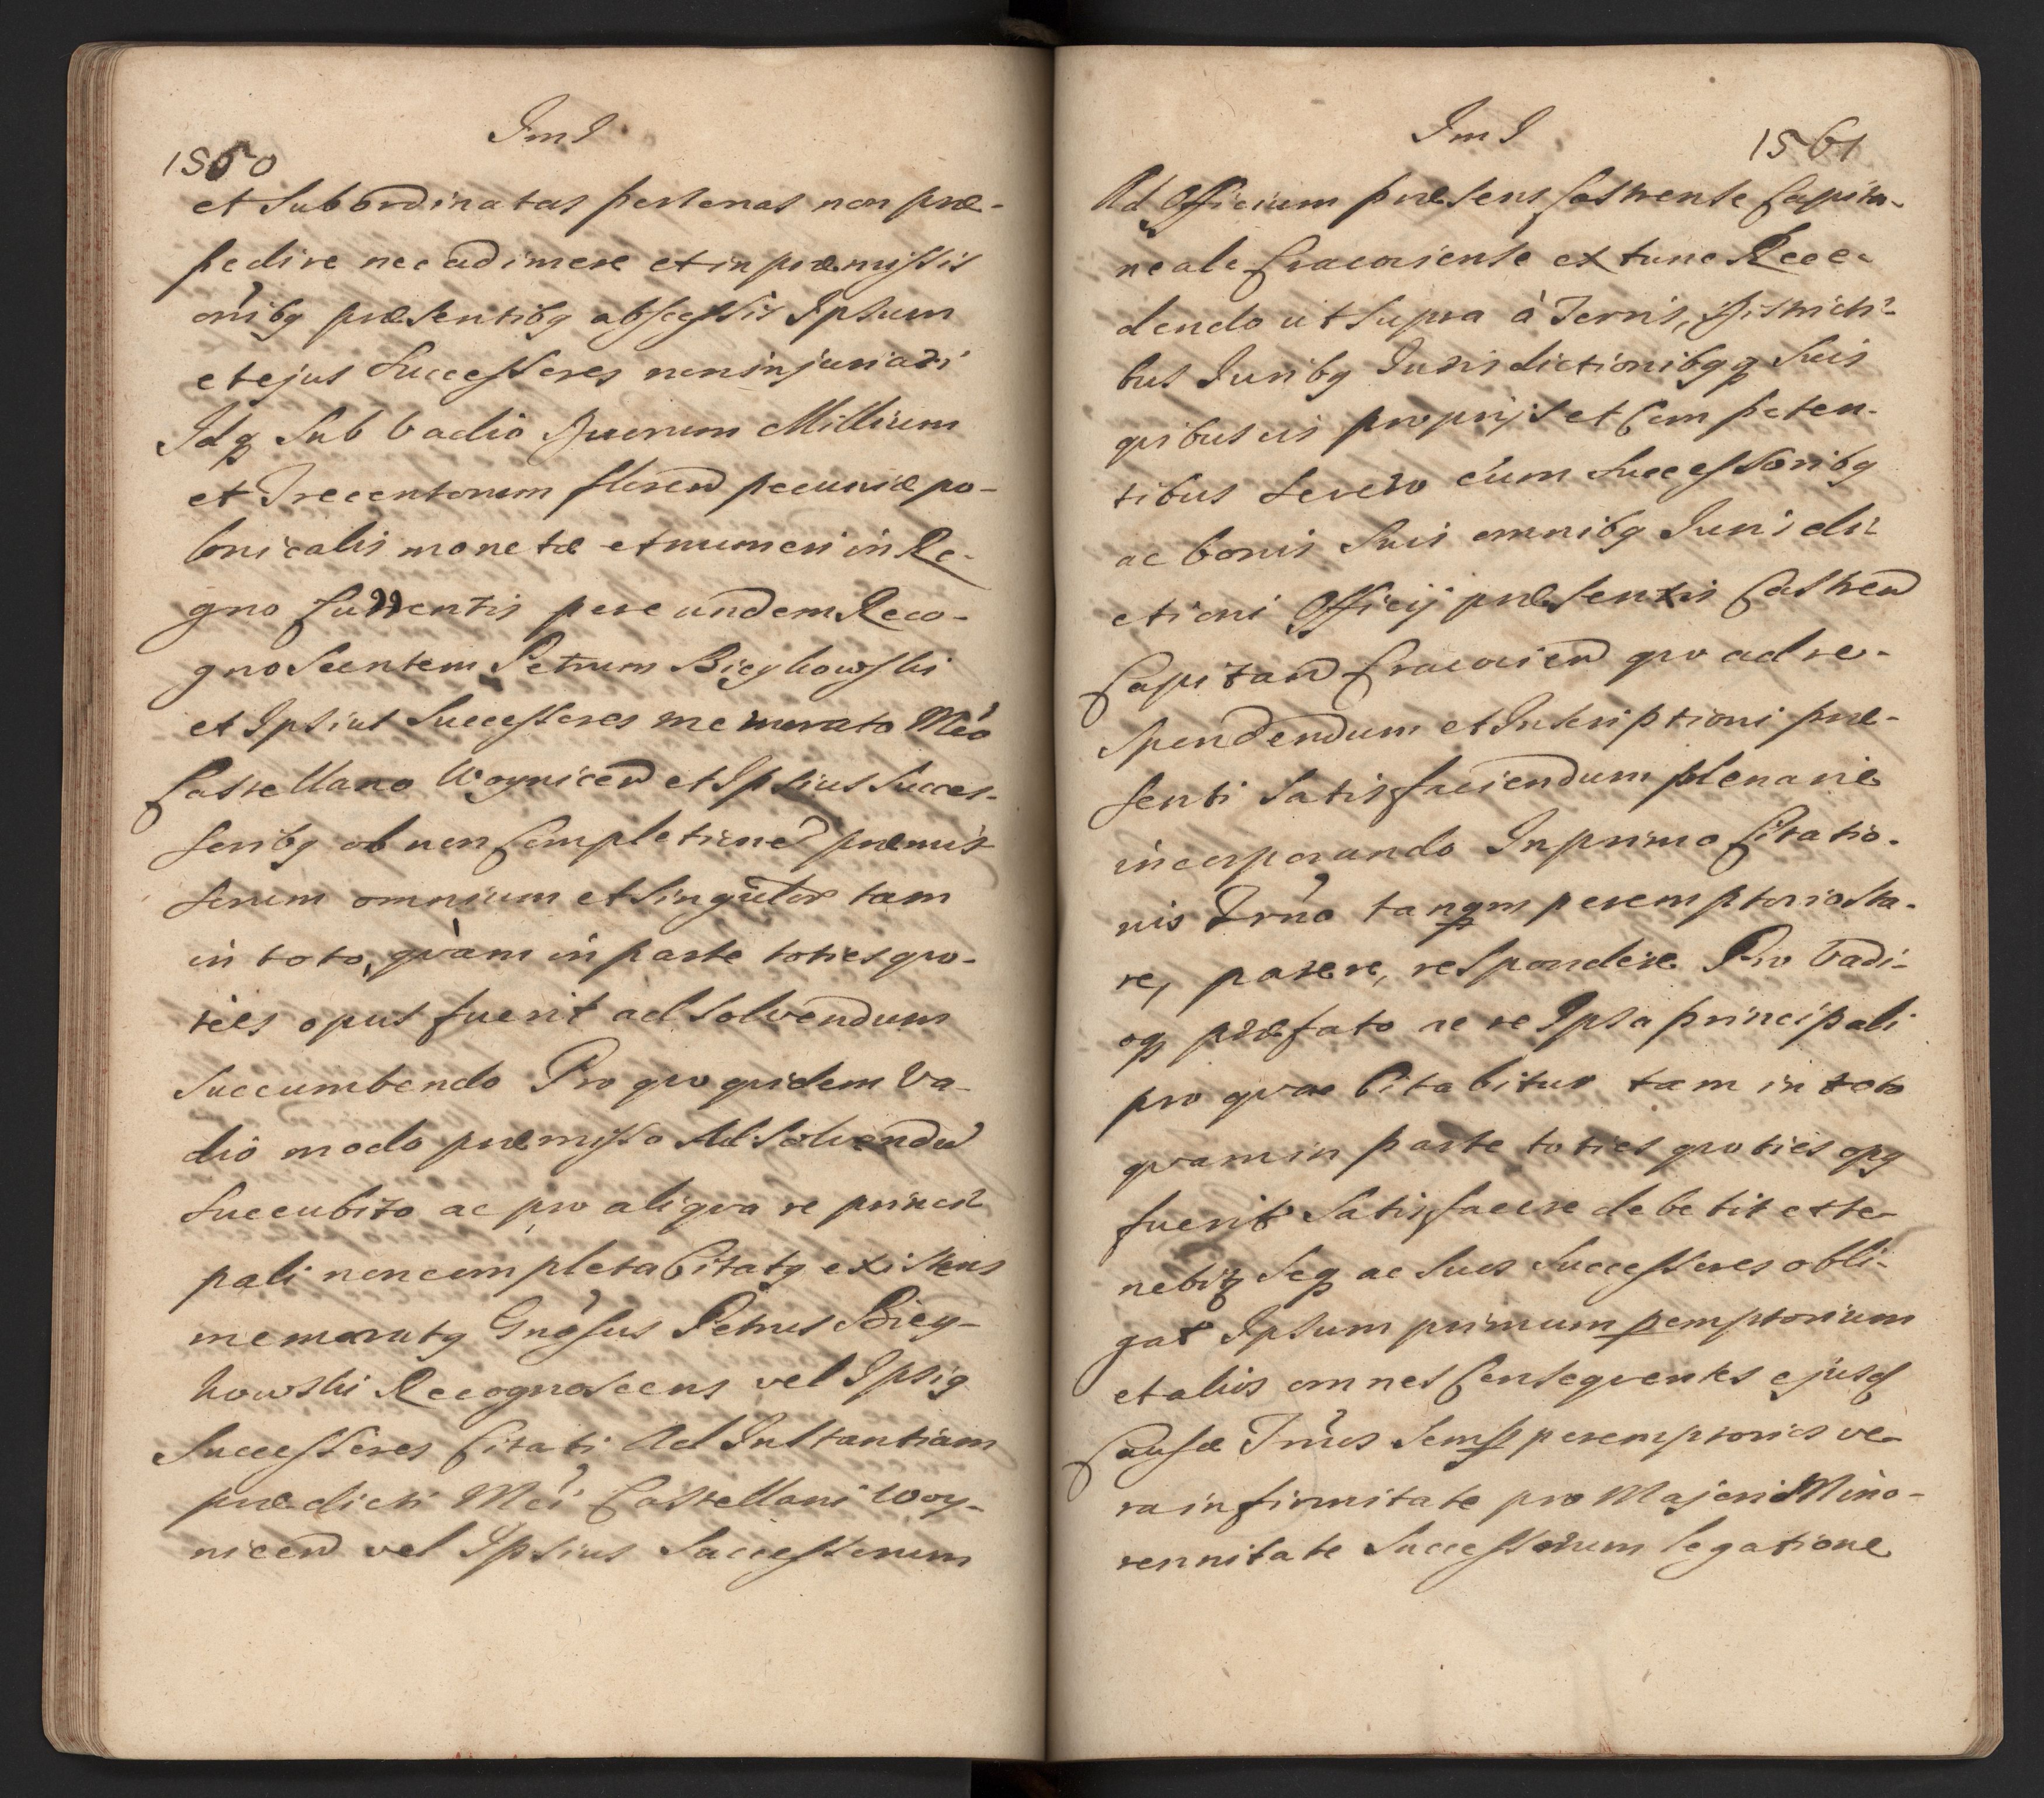 1560
et Subordinatas personas non præ-
pedire nec adimere et in præmissis
oĩbg præsentibg absgessis Ipsum
et ejus Successores non injuriari
Idq Sub Vadio Duorum Millium
et Trecentorum floren pecuniæ po-
lonicalis monetæ et numeri in Re-
gno Currentis pere undem Reco-
gnoscentem Petrum Bieykowski
et Ipsius Successores memorato Mco
Castellano Woynicen et Ipsius Succes-
soribg ob non Completionem præmis-
sorum omnium et singulor tam
in toto, qvàm in parte toties qvo-
ties opus fuerit ad solvendum
Succumbendo Pro qvo qvidem Va-
dio modo præmisso Ad Solvendũ
Succubito ac pro aliqva re princi-
pali non completa Citatg existens
memoratg Gnosus Petrus Biey-
kowski Recognoscens vel Ipsig
Successores Citati Ad Instantiam
prædicti Mci Castellani Woy-
nicen vel Ipsius Successorum
1561
Ad Officium præsens Castrense Capita-
neale Cracoviense ex tunc Rece-
dendo ut Supra à Terris, Districti-
bus Juribg Jurisdictionibgq Suis
qvibusvis proprijs et Competen-
tibus Se vero cum Successoribg
ac bonis Suis omnibg Jurisdi-
ctioni Officij præsentis Castren
Capitan Cracovien qvo ad re-
spondendum et Inscriptioni præ-
senti Satisfaciendum plenarie
incorporando In primo Citatio-
nis Trño tanqm peremptorio Sta-
re, parere, respondere Pro Vadi-
oq præfato ac re Ipsa principali
pro qva Citabitur tam in toto
qvam in parte toties qvoties opg
fuerit Satisfacere debebit et te-
nebitg Seq ac Suos Successores obli-
gat Ipsum primum pemptorium
et alios omnes Conseqventes ejusd
Causæ Trños Semp peremptorios ve-
ra infirmitate pro Majori Mino-
rennitate Successorum legatione